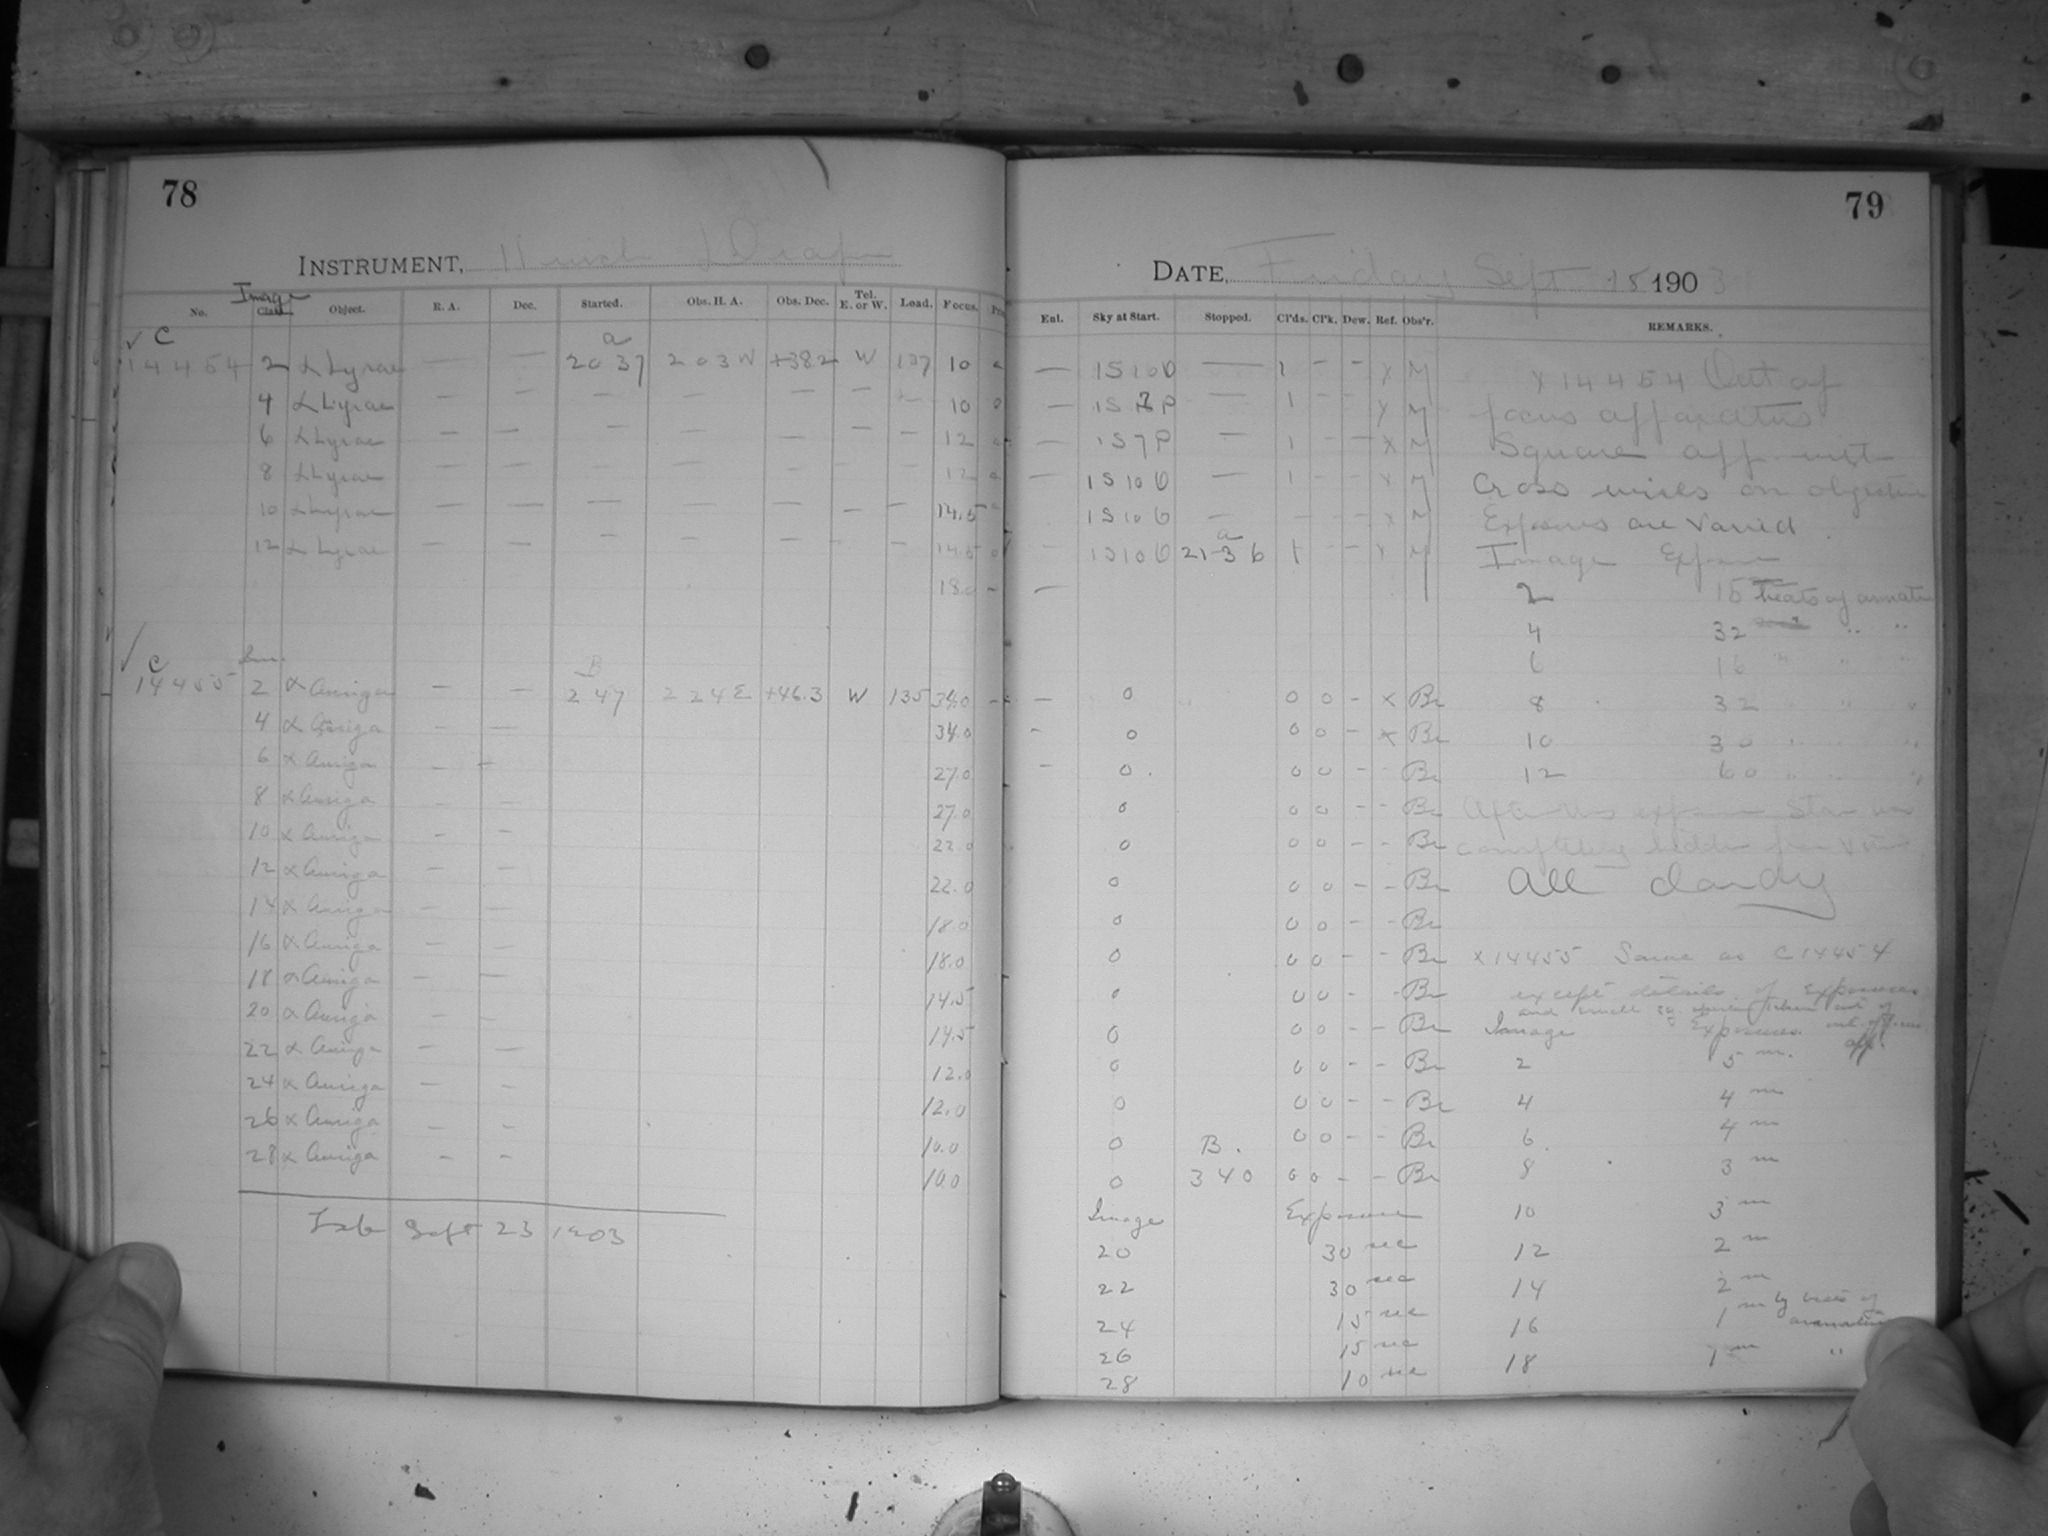 78
INSTRUMENT, 11 inch Draper
Image
No. Class Object. R. A. Dec. Started. Obs. H. A. Obs. Dec. Tel. E. or W. Load. Focus.
C a
14454 2 α Lyrae — — 20 37 2 03 W +38.2 W 137 10
4 α Lyrae — — — — — — 10
6 α Lyrae — — — — — — — 12
8 α Lyrae — — — — — — — 12
10 α Lyrae — — — — — — — 14.5
12 α Lyrae — — — — — — — 14.5
18.0
C B
14455 2 α Auriga — — 2 47 2 24 E +46.3 W 135 34.0
4 α Auriga — — 34.0
6 α Auriga — — 27.0
8 α Auriga — — 27.0
10 α Auriga — — 22.0
12 α Auriga — — 22.0
14 α Auriga — — 18.0
16 α Auriga — — 18.0
18 α Auriga — — 14.5
20 α Auriga — — 14.5
22 α Auriga — — 12.0
24 α Auriga — — 12.0
26 α Auriga — — 10.0
28 α Auriga — — 10.0
Sept 23 1903
79
DATE, Friday Sept 18 1903
Enl. Sky at Start. Stopped. Cl'ds. Cl'k. Dew. Ref. Obs'r. REMARKS.
— 1S 10 0 — 1 - - x M x 14454 Out of
— — 1 - - x M focus apparatus
— 1S 7 P — 1 - - x M Square app. with
— 1S 10 0 — 1 - - x M Cross wires on objective
1S 10 0 — - - - x M Exposures are varied
a
- 1S 10 0 21 36 1 - - x M Image Exposure
— 2 15 beats of armature
4 32 " "
6 16 " " "
— 0 0 0 - x Br 8 32 " " "
- 0 0 0 - x Br 10 30 " " "
- 0 0 0 - - Br 12 60 " " "
0 0 0 - - Br After this exposure Star was
0 0 0 - - Br completely hidden from view
0 0 0 - - Br All cloudy
0 0 0 - - Br
0 0 0 - - Br x 14455 Same as C 14454
0 0 0 - - Br except details of exposures
and small sq. taken out of
0 0 0 - - Br Image Exposures out of focus app.
0 0 0 - - Br 2 5 m.
0 0 0 - - Br 4 4 m
0 B. 0 0 - - Br 6 4 m
0 3 40 0 0 - - Br 8 3 m
Image Exposure 10 3 m
20 30 sec 12 2 m
22 30 sec 14 2 m
24 15 sec 16 1 m by beats of armature
26 15 sec 18 1 m "
28 10 sec